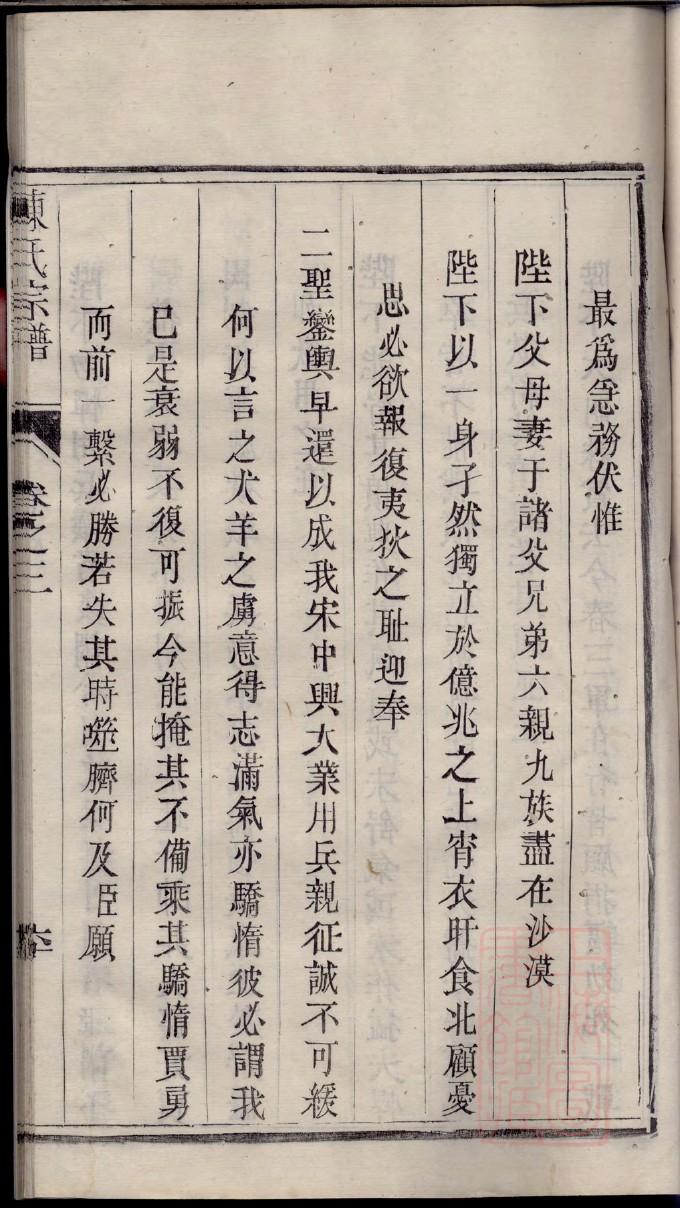 最爲急務伏惟
陛下父母妻子諸父兄弟六親九族盡在沙漠
陛下以一身孑然獨立於億兆之上宵衣旰食北顧憂
思必欲報復夷狄之耻迎奉
二聖鑾輿早還以成我宋中興大業用兵親征誠不可緩
何以言之犬羊之虜意得志滿氣亦驕惰彼必謂我
已是衰弱不復可振今能掩其不備乘其驕惰賈勇
而前一繫必勝若失其時噬臍何及臣願
陳氏宗譜
卷之三